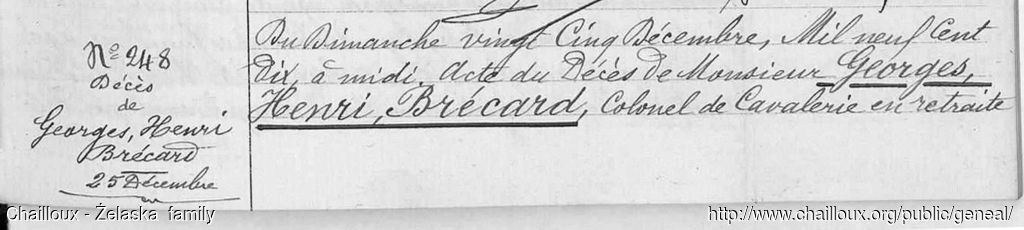 Nº 248
Décès
de
Georges, Henri
Brécard
25 Décembre
Du Dimanche vingt Cinq Décembre, Mil neuf Cent
Dix, à midi. Acte du Décès de Monsieur Georges,
Henri, Brécard, Colonel de Cavalerie en retraite
Chailloux - Żelaska family
http://www.chailloux.org/public/geneal/